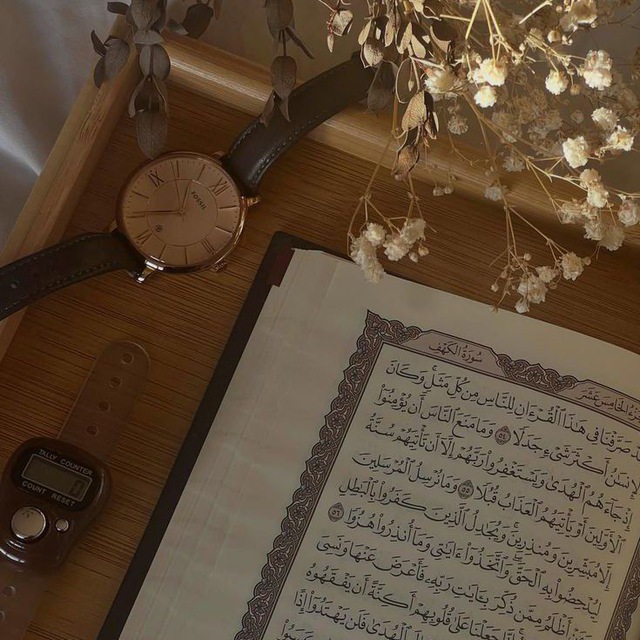 FOSSIL
TALLY COUNTER
COUNT RESET
سُورَةُ الكَهْفِ
الخَامِسَ عَشَرَ
صَرَّفْنَا فِي هَٰذَا ٱلْقُرْءَانِ لِلنَّاسِ مِن كُلِّ مَثَلٍ وَكَانَ
أَكْثَرَ شَىْءٍ جَدَلًا ٥٤ وَمَا مَنَعَ ٱلنَّاسَ أَن يُؤْمِنُوٓا۟
إِذْ جَآءَهُمُ ٱلْهُدَىٰ وَيَسْتَغْفِرُوا۟ رَبَّهُمْ إِلَّآ أَن تَأْتِيَهُمْ سُنَّةُ
ٱلْأَوَّلِينَ أَوْ يَأْتِيَهُمُ ٱلْعَذَابُ قُبُلًا ٥٥ وَمَا نُرْسِلُ ٱلْمُرْسَلِينَ
إِلَّا مُبَشِّرِينَ وَمُنذِرِينَ وَيُجَٰدِلُ ٱلَّذِينَ كَفَرُوا۟ بِٱلْبَٰطِلِ
لِيُدْحِضُوا۟ بِهِ ٱلْحَقَّ وَٱتَّخَذُوٓا۟ ءَايَٰتِى وَمَآ أُنذِرُوا۟ هُزُوًا ٥٦
أَظْلَمُ مِمَّن ذُكِّرَ بِـَٔايَٰتِ رَبِّهِۦ فَأَعْرَضَ عَنْهَا وَنَسِىَ
إِنَّا جَعَلْنَا عَلَىٰ قُلُوبِهِمْ أَكِنَّةً أَن يَفْقَهُوهُ
ٱلْهُدَىٰ فَلَن يَهْتَدُوٓا۟ إِذًا